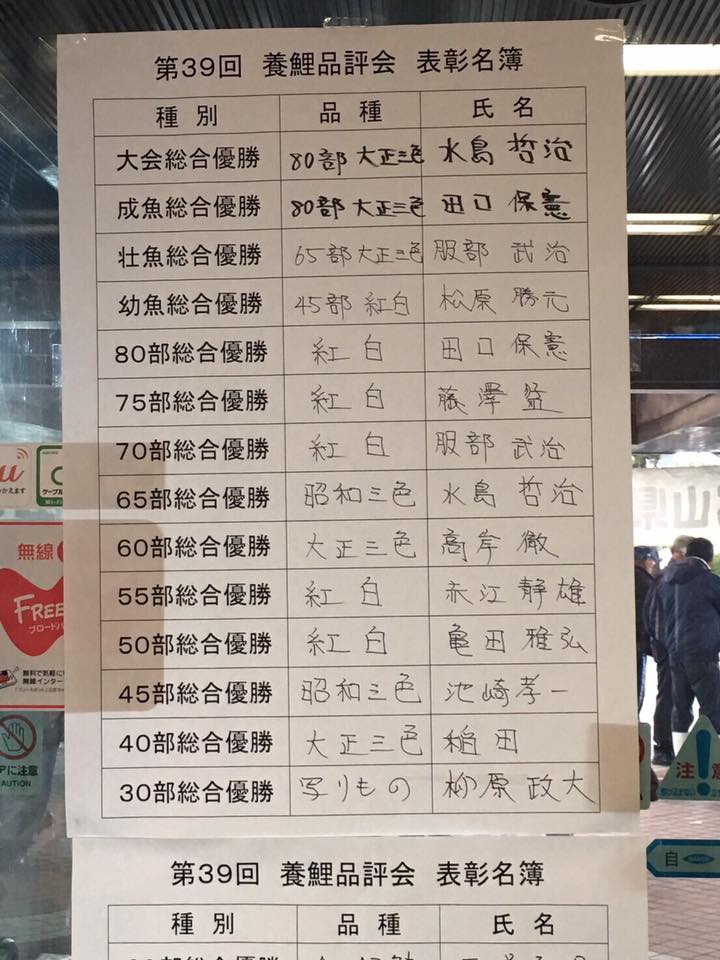 第39回 養鯉品評会 表彰名簿
種別 品種 氏名
大会総合優勝 80部 大正三色 水島 哲治
成魚総合優勝 80部 大正三色 田口 保憲
壮魚総合優勝 65部 大正三色 服部 武治
幼魚総合優勝 45部 紅白 松原 勝元
80部総合優勝 紅白 田口 保憲
75部総合優勝 紅白 藤澤 益
70部総合優勝 紅白 服部 武治
65部総合優勝 昭和三色 水島 哲治
60部総合優勝 大正三色 高岸 徹
55部総合優勝 紅白 赤江 静雄
50部総合優勝 紅白 亀田 雅弘
45部総合優勝 昭和三色 池崎孝一
40部総合優勝 大正三色 稲田
30部総合優勝 写りもの 柳原 政大
第39回 養鯉品評会 表彰名簿
種別 品種 氏名
無線
FREE
ブロードバ
無料で気軽に
無線インター
アに注意
CAUTION
注意
自
山県